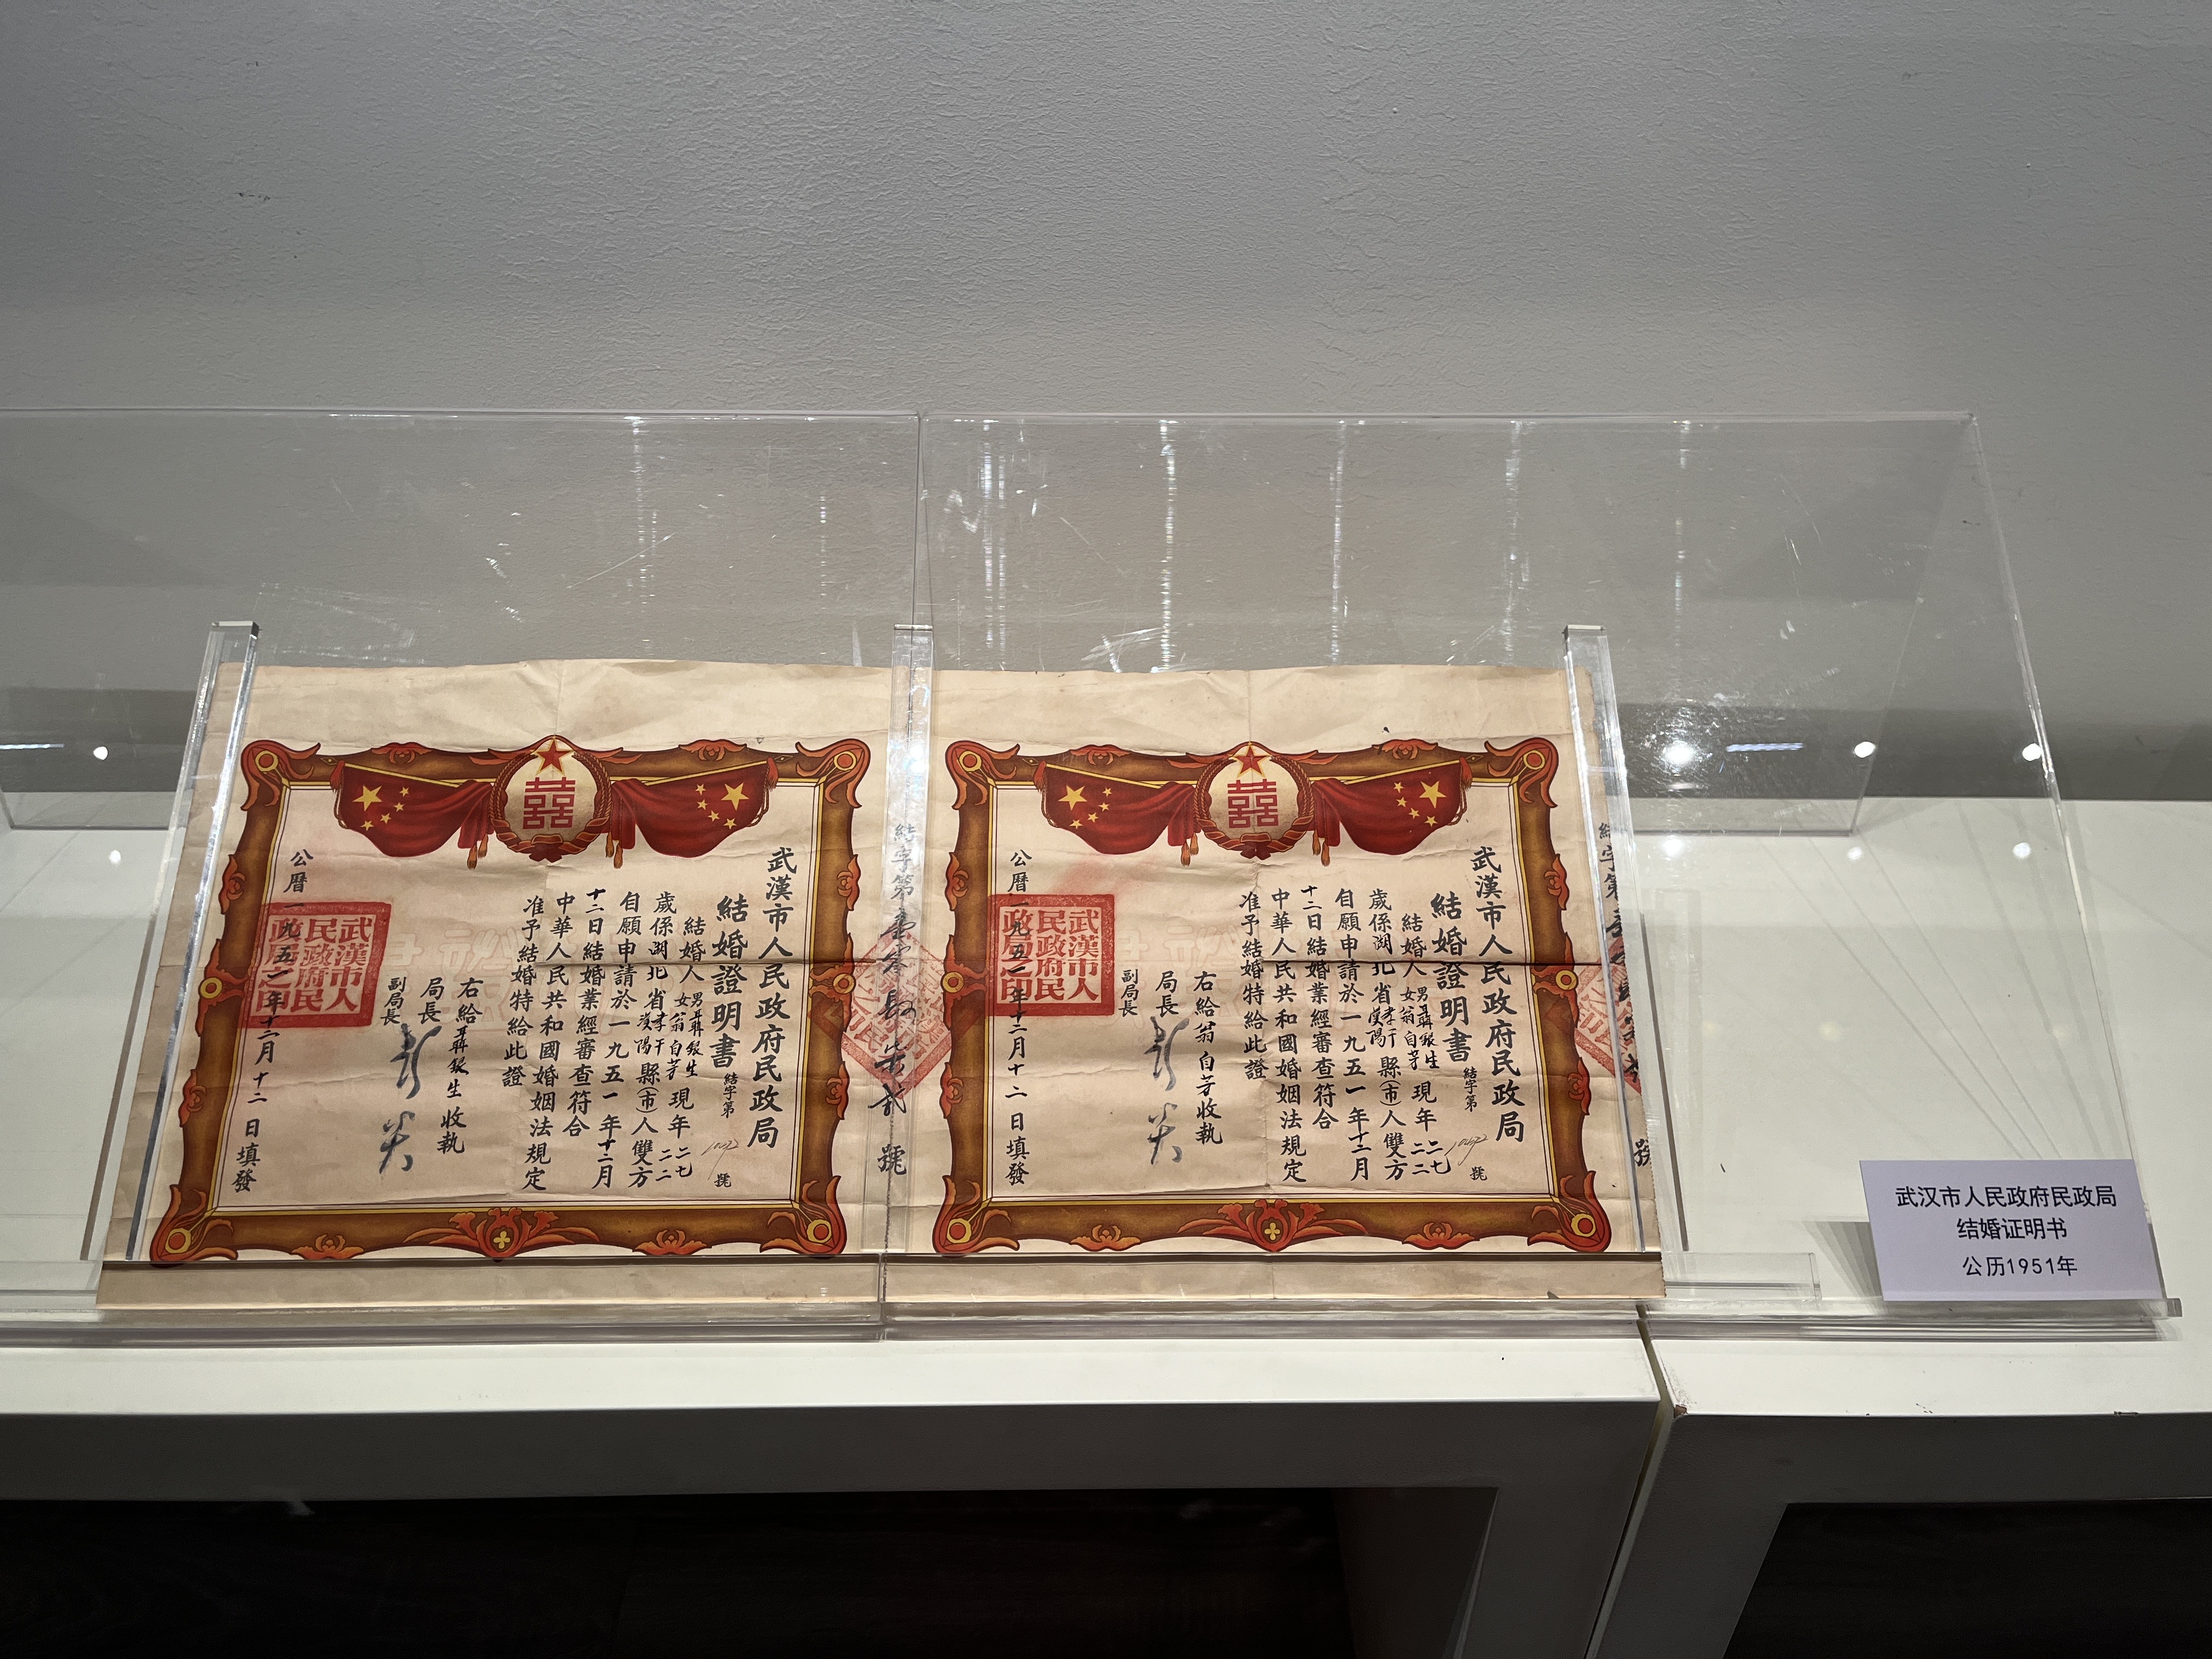 武漢市人民政府民政局
結婚證明書
結字第
號
結婚人男聶銀生女翁自芳現年二七二二
歲係湖北省孝干漢陽縣(市)人雙方
自願申請於一九五一年十二月
十二日結婚業經審查符合
中華人民共和國婚姻法規定
准予結婚特給此證
右給聶銀生收執
局長
副局長
公曆一九五一年十二月十二日填發
武漢市人民政府民政局之印
結字第
號
武漢市人民政府民政局
結婚證明書
結字第
號
結婚人男聶銀生女翁自芳現年二七二二
歲係湖北省孝干漢陽縣(市)人雙方
自願申請於一九五一年十二月
十二日結婚業經審查符合
中華人民共和國婚姻法規定
准予結婚特給此證
右給翁自芳收執
局長
副局長
公曆一九五一年十二月十二日填發
武漢市人民政府民政局之印
號
武汉市人民政府民政局
结婚证明书
公历1951年